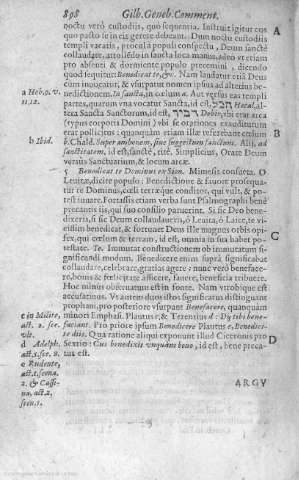 898 Gilb. Geneb. Comment.
noctu verò custodiis, quo sequentia. Instruit igitur eos
quo pacto se in eis gerere debeant. Dum noctu custodiis
templi vacatis, procul à populi conspectu, Deum sanctè
collaudate, attollendo in sancta loca manus, adeo vt etiam
pro absenti & dormiente populo precemini, dicendo
quod sequitur Benedicat te, &c. Nam laudatur etiã Deus
cum inuocatur, & vsurpatur nomen ipsius ad alterius be-
nedictionem. In sancta, in cœlum a. Aut versus eas templi
partes, quarum vna vocatur Sancta, id est, הכל Hecal, al-
tera Sancta Sanctorum, id est, דביר Debir, vbi erat arca
(typus corporis Domini) vbi se orationes exauditurum
erat pollicitus: quanquàm etiam illæ referebant cœlum
b. Chald. Super ambonem, siue suggestum sanctum. Alij, ad
sanctitatem, id est, sanctè, ritè. Simplicius, Orate Deum
versus Sanctuarium, & locum arcæ.
3 Benedicat te Dominus ex Sion. Mimesis consueta. O
Leuitæ, dicite populo: Benedictione & fauore prosequa-
tur te Dominus, cœli terræque conditor, qui vult, & po-
test iuuare. Fortassis etiam verba sunt Psalmographi benè
precantis iis, qui suo consilio paruerint. Si sic Deo bene-
dixeris, si sic Deum collaudaueris, ô Leuita, ô Laice, te vi-
cissim benedicat, & fortunet Deus ille magnus orbis opi-
fex, qui cœlum & terram, id est, omnia in sua habet po-
testate. Te. Immutat constructionem ob immutatam si-
gnificandi modum. Benedicere enim suprà significabat
collaudare, celebrare, gratias agere: nunc verò beneface-
re, bonis & felicitate afficere, fauere, beneficia tribuere.
Hoc minùs obseruatum est in fonte. Nam vtrobique est
accusatiuus. Vt autem duos illos significatus distinguant
prophani, pro posteriore vsurpant Benefacere, quanquàm
minori Emphasi. Plautus c, & Terentius d: Dij tibi bene-
faciant. Pro priore ipsum Benedicere Plautus e, Benedici-
te diis. Qua ratione aliqui exponunt illud Ciceronis pro
Sextio: Cui benedixit vnquàm bono, id est, bene preca-
tus est.
ARGV
A
B
C
D
a Hebr. 9.
11.12.
b Ibid.
c in Milite,
act. 2. sce.
vlt.
d Adelph.
act. 5. sce. 8.
e Rudente,
act. 1. scena.
2. & Cassi-
na, act. 2.
scen. 5.